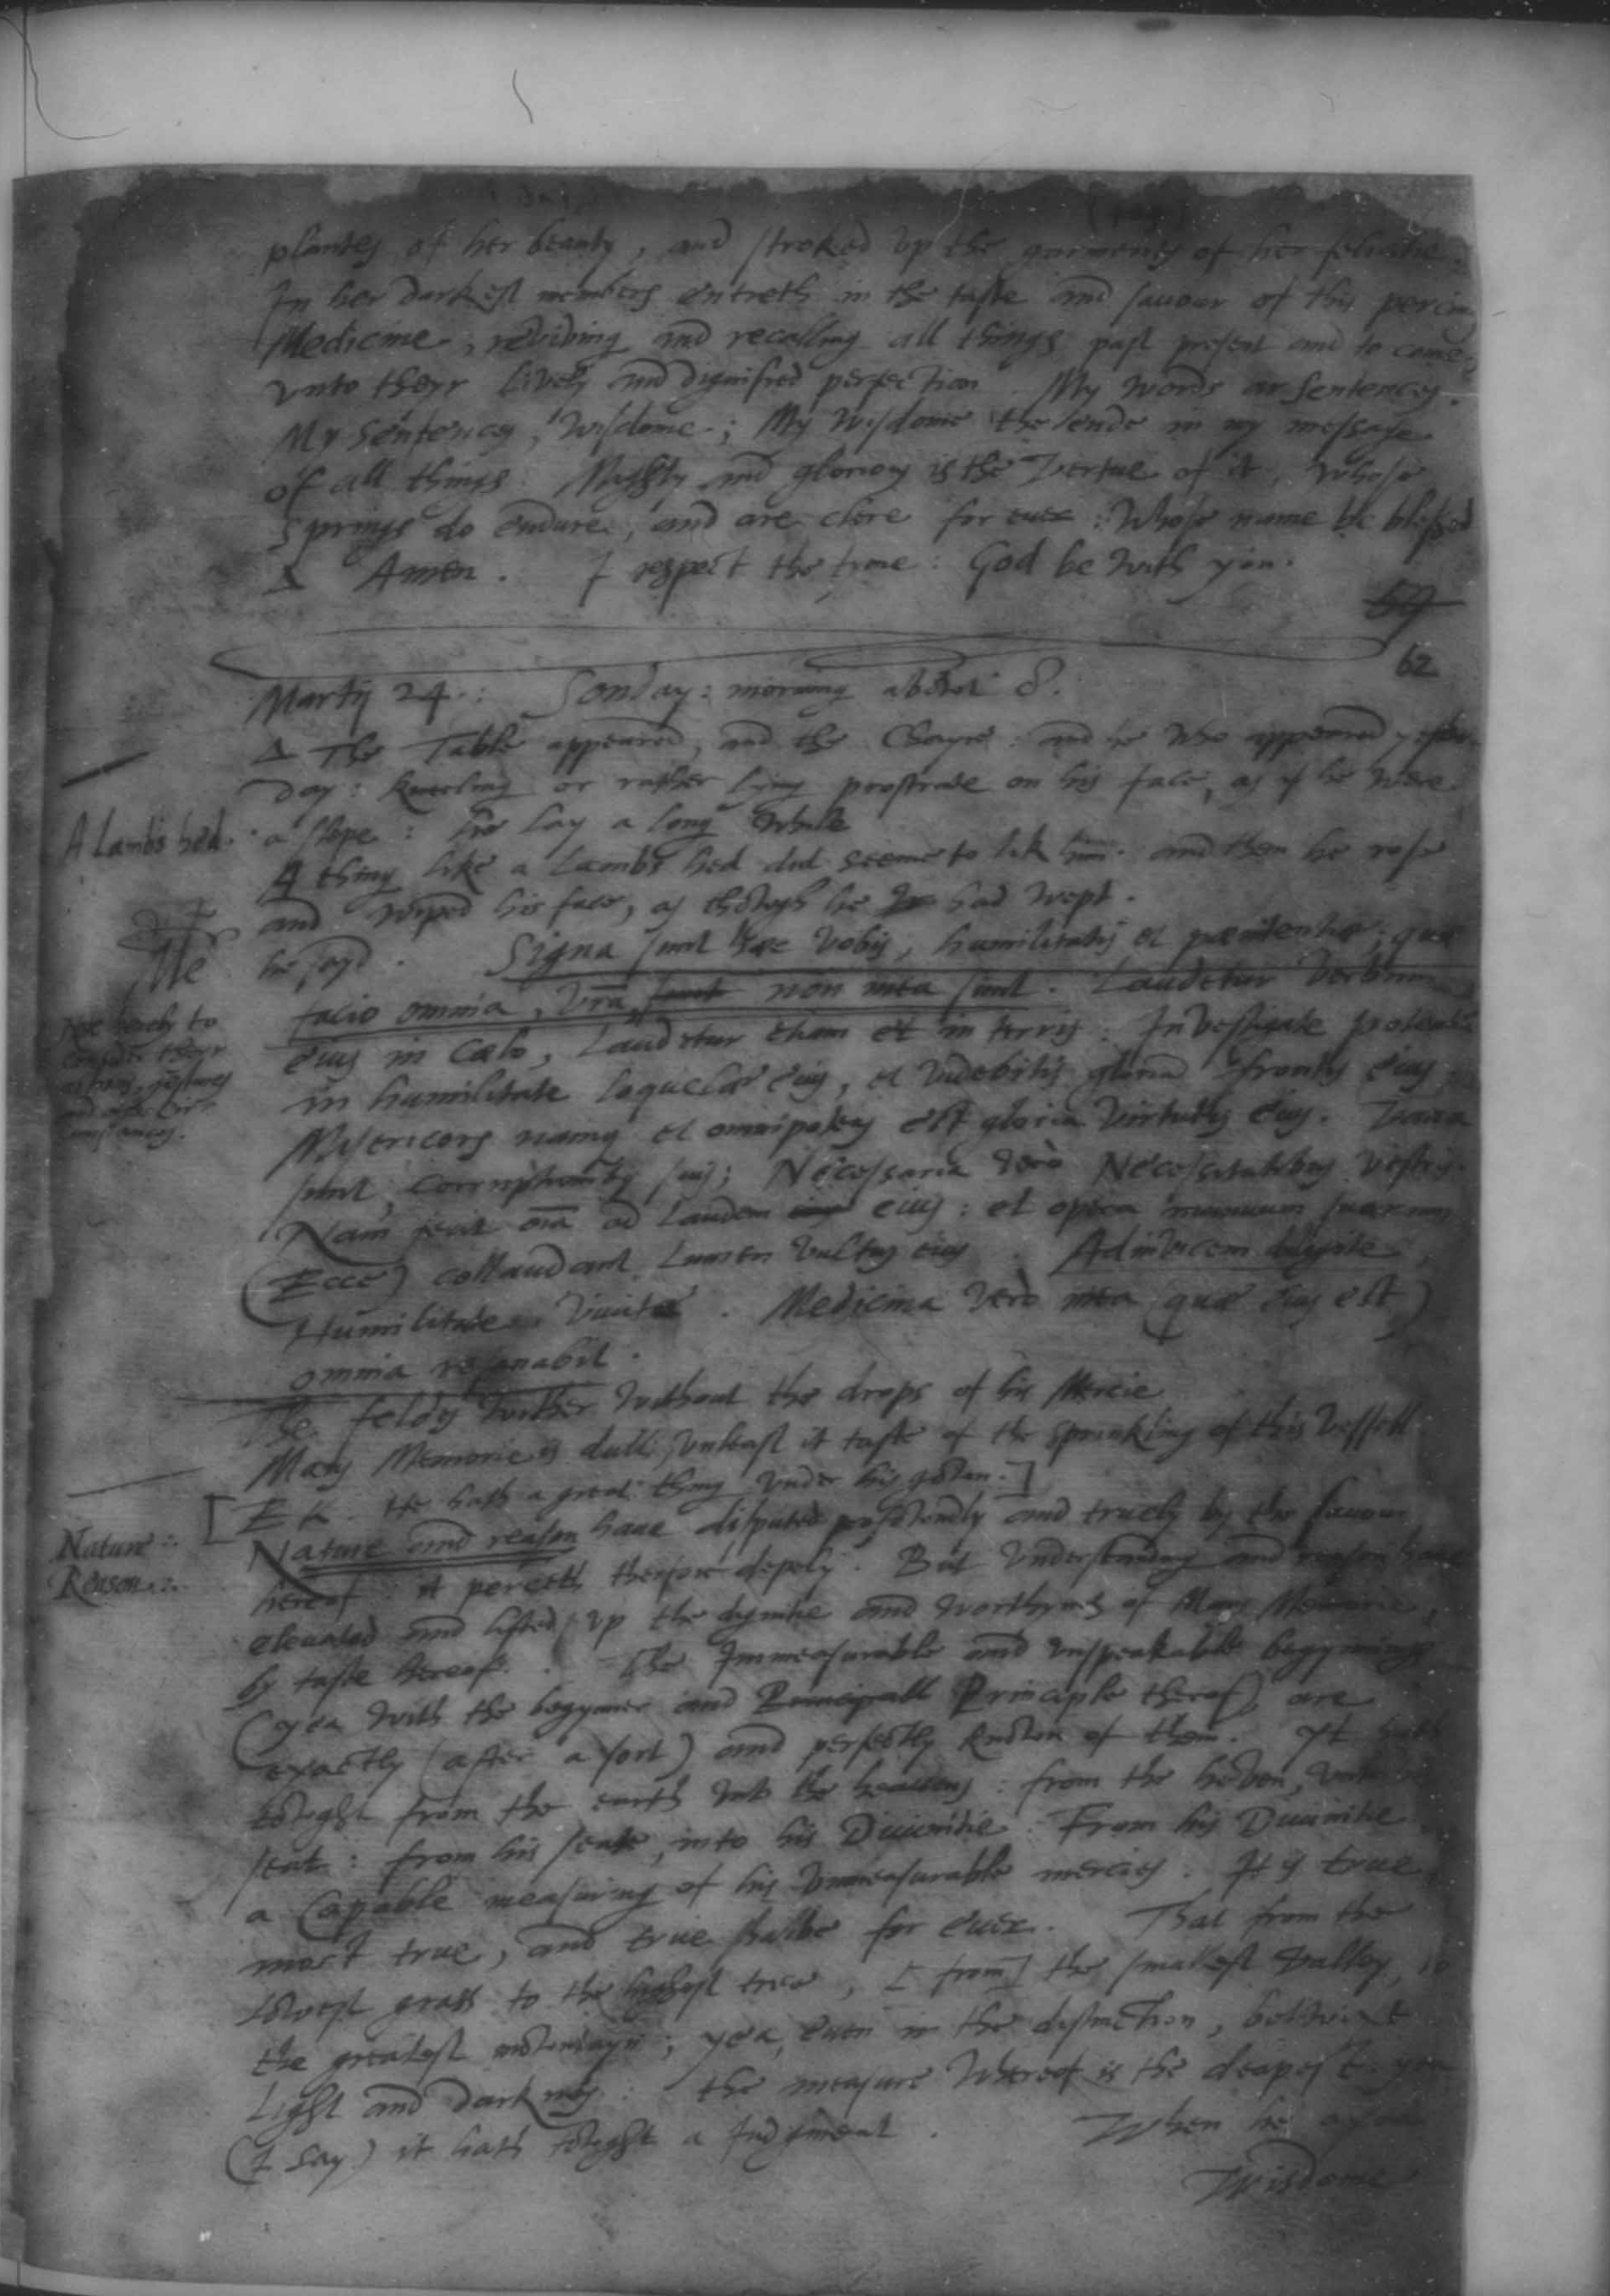 plantes of her beauty, and stroked vp the garments of her felicitie.
In her darkest members entreth in the taste and sauour of this percing
Medicine; reviving and recalling all things past present and to come,
vnto theyr lively and dignified perfection. My words ar sentences.
My Sentences, wisdome; My wisdome the ende in my message
of all things. Mighty and glorious is the Vertue of it, whose
springs do endure, and are clere for euer: Whose name be blessed
Δ Amen. I respect the tyme: God be with you.
62
Martij 24: Sonday: morning abowt 8.
Δ The Table appeared, and the Chayre: and he who appeared yester
day: kneeling or rather lying prostrate on his face, as yf he were
a slepe: he lay a long while
A Lambs hed.
A thing like a Lambs hed did seeme to lik him. and then he rose
and wiped his face, as thowgh he had wept.
Me
he sayd. Signa sunt hæc vobis, humilitatis et pœnitentiæ; quæ
facio omnia, vra, sunt non mea sunt. Laudetur verbum
eius in Cælo, Laudetur etiam et in terris. Investigate potentiam
in humilitate loquelæ eius, et videbitis gloriam frontis eius
Note hereby to
consider theyr
actions, gestures
and other cir-
cumstances.
Misericors namque et omnipotens est gloria virtutis eius. Vana
sunt, corruptionibus suis; Necessaria verò Necessitatibus vestris.
Nam fecit oia ad Laudem eius: et opera manuum suarum
(Ecce) collaudant Lumen vultus eius. Adinvicem diligite
Humilitate vivite. Medicina verò mea (quæ eius est)
omnia resanabit.
The feldes wither without the drops of his Mercie
Mans Memorie is dull, vnleast it taste of the sprinkling of this vessell
[EK. He hath a great thing vnder his gown.]
Nature:
Reason:
Nature and reason have disputed profowndly and truely by the sauour
hereof: it perceth therfore depely. But vnderstanding and reason have
elevated and lifted vp the dignitie and worthynes of Mans Memorie,
by taste hereof. The Immeasurable and vnspeakable begynnings
(yea with the begynner and Principall Principle therof) are
exactly (after a sort) and perfectly known of them. Yt hath
towght from the earth vnto the heavens: from the heven, vnto
seat: from his seate, into his Diuinitie. From his Diuinitie
a Capable measuring of his vnmeasurable mercies. It is true,
most true, and true shalbe for euer. That from the
lowest grass to the highest tree, [from] the smallest valley, to
the greatest mowntayn; yea, euen in the distinction, betwixt
Light and darknes: the measure whereof is the deapest: yea
(I say) it hath towght a Judgment. When he
Wisdome